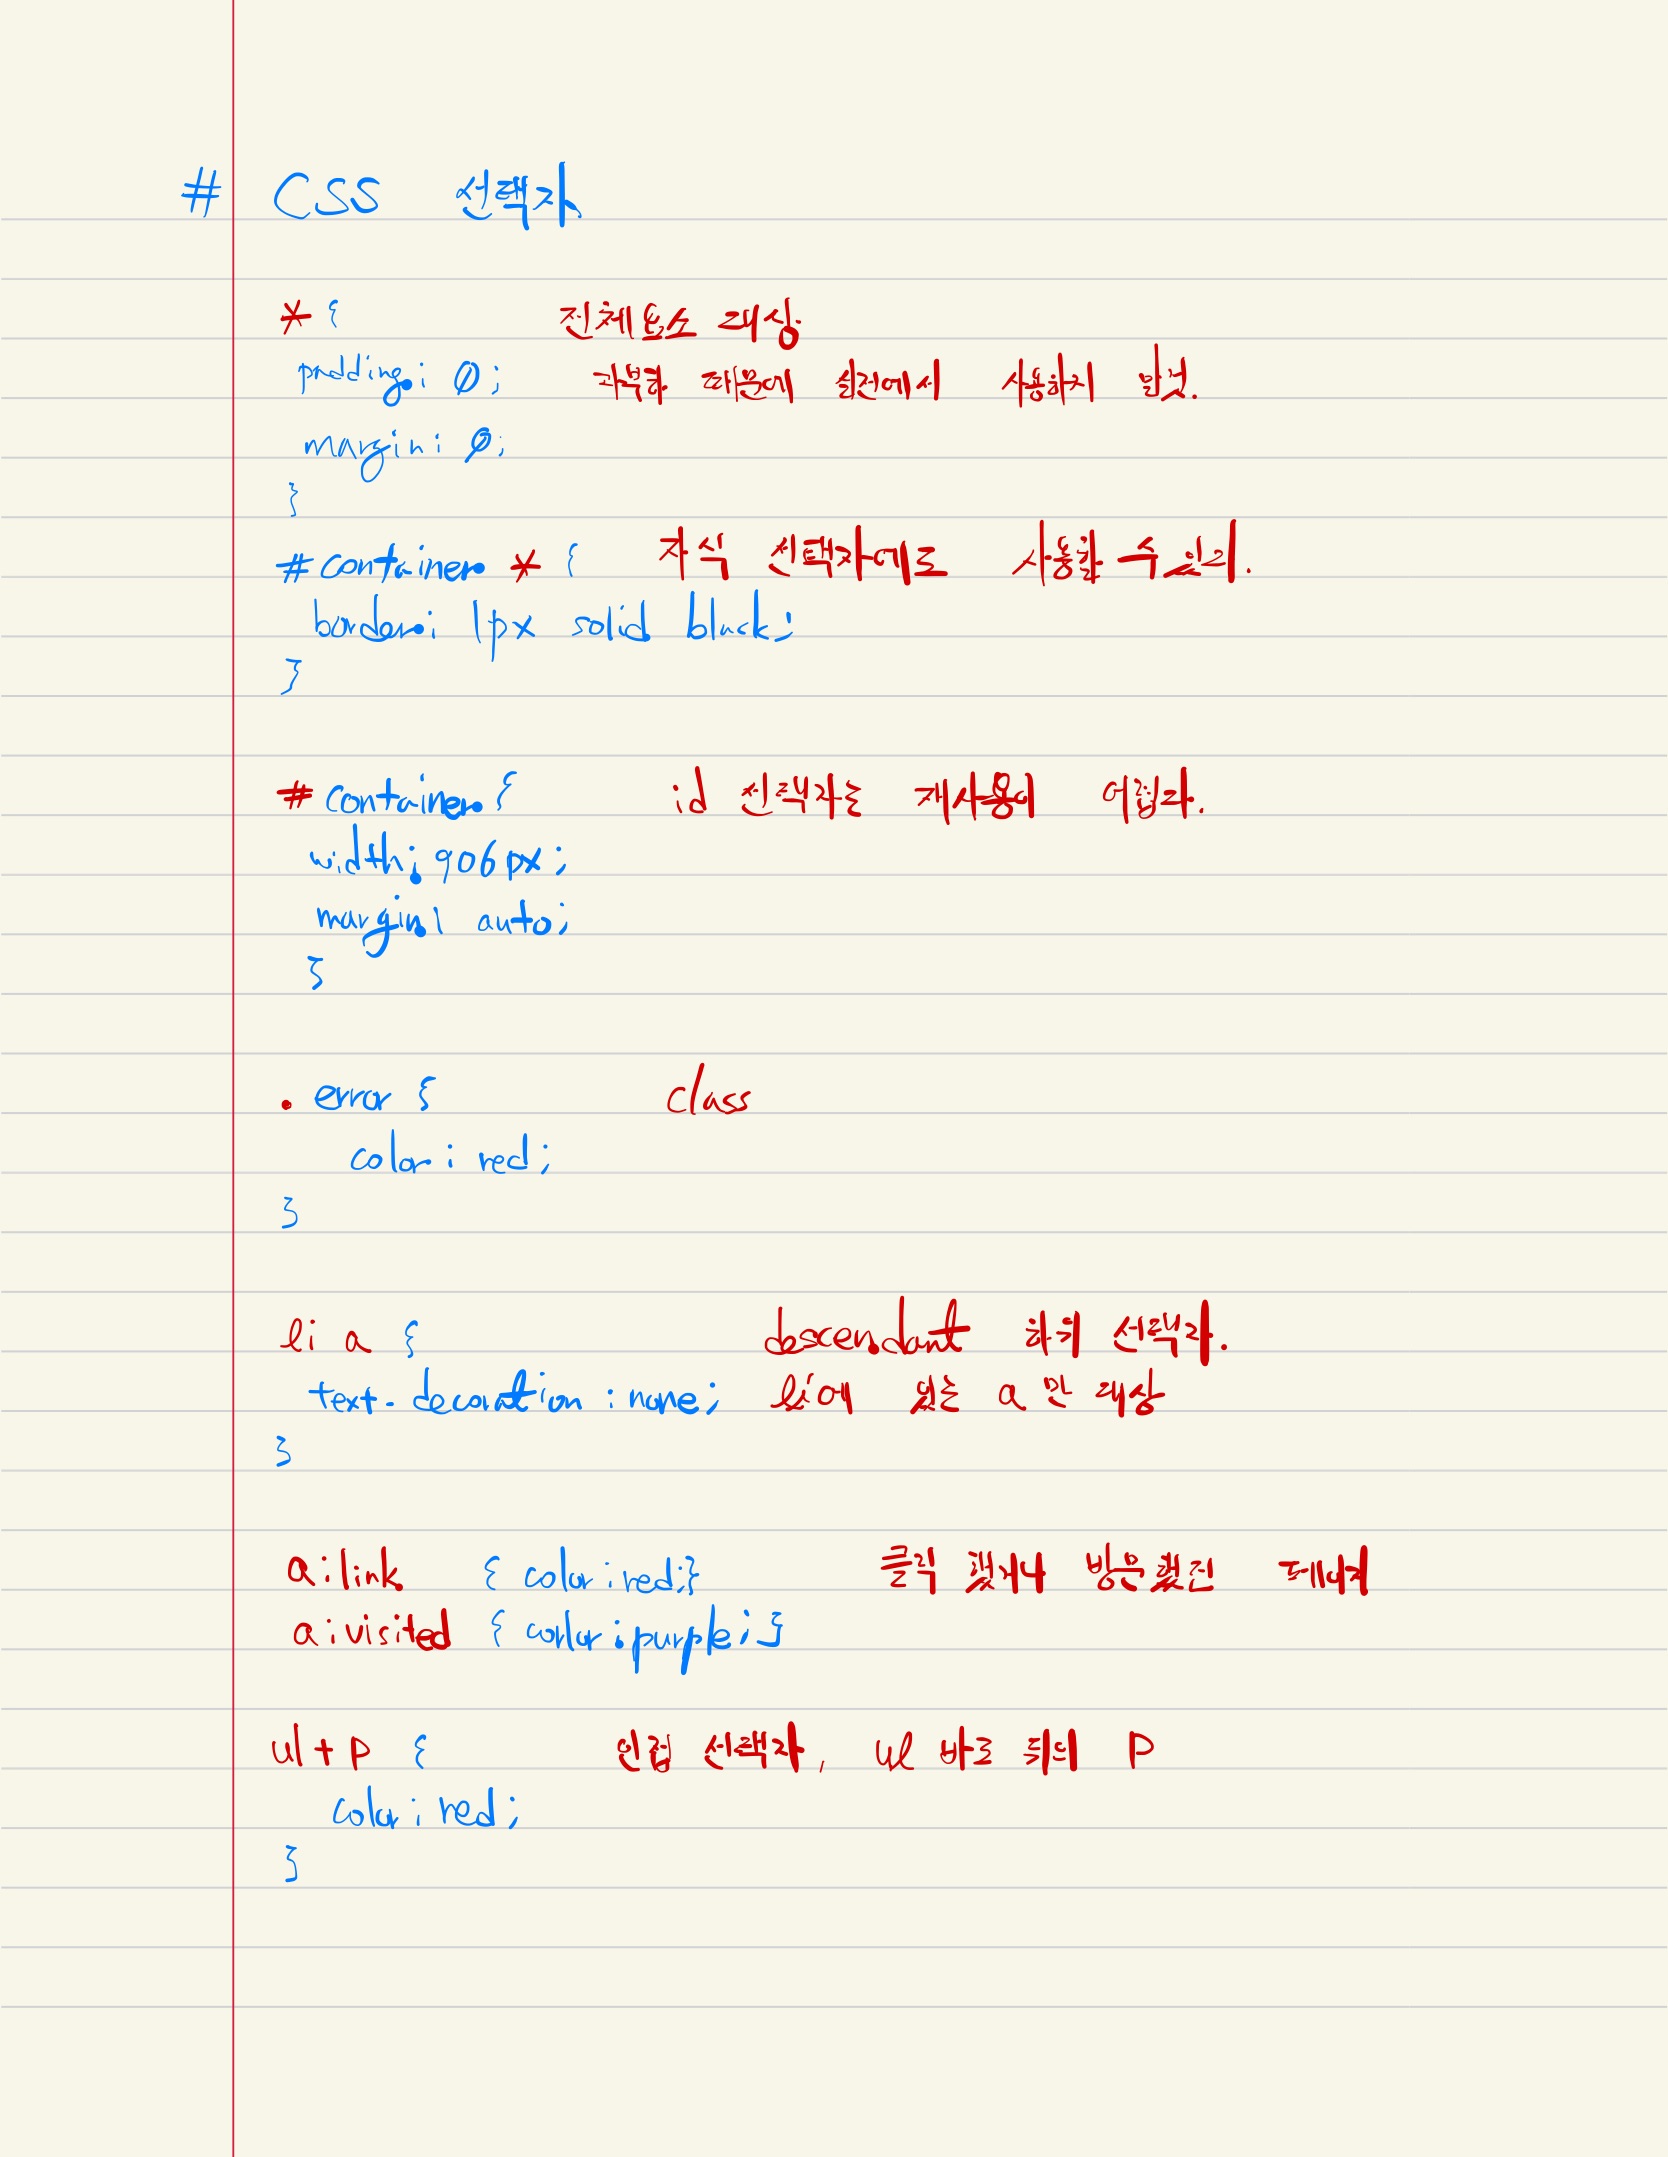 # CSS 선택자
* { 전체요소 대상
padding: 0; 과부하 때문에 실전에서 사용하지 말것.
margin: 0;
}
#container * { 자식 선택자에로 사용할 수 있다.
border: 1px solid black;
}
#container { id 선택자는 재사용이 어렵다.
width: 906px;
margin: auto;
}
.error { class
color: red;
}
li a { descendant 하위 선택자.
text-decoration: none; li에 있는 a만 대상
}
a:link { color: red;} 클릭 했거나 방문했던 페이지
a:visited { corlor: purple;}
ul + p { 인접 선택자, ul 바로 뒤의 p
color: red;
}